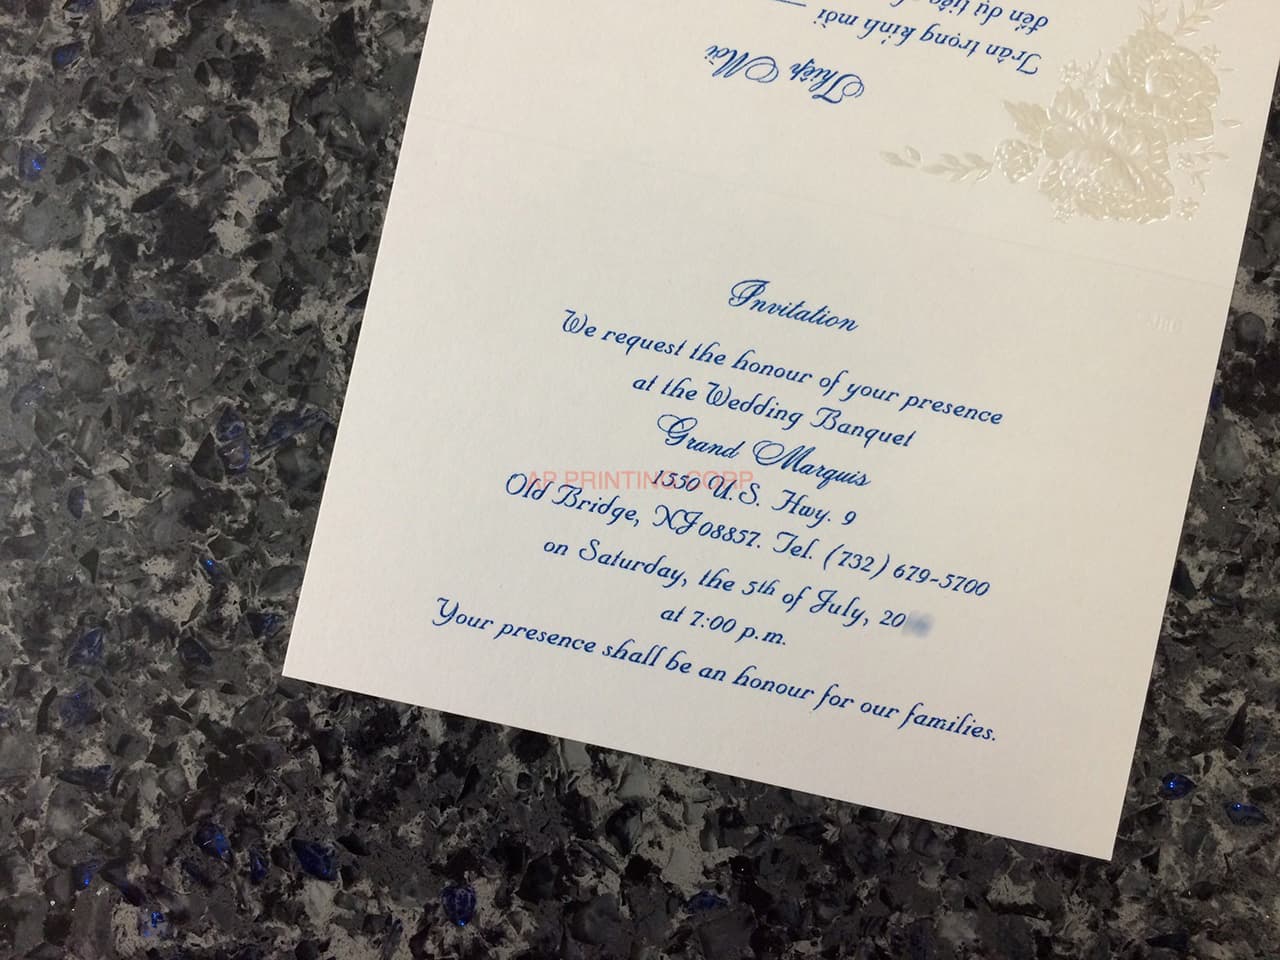 Thiệp Mời
Trân trọng kính mời
đến dự tiệc
Invitation
We request the honour of your presence
at the Wedding Banquet
Grand Marquis
1550 U.S. Hwy. 9
Old Bridge, NJ 08857. Tel. (732) 679-5700
on Saturday, the 5th of July, 20
at 7:00 p.m.
Your presence shall be an honour for our families.
AP PRINTING CORP